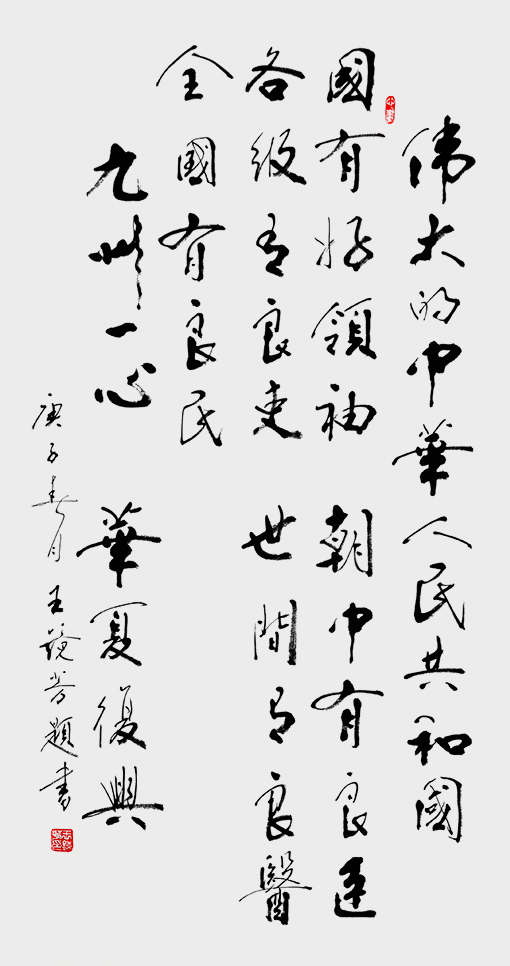 偉大的中華人民共和國
國有好領袖 朝中有良
各級有良吏 世間有良醫
全國有良民
九州一心 華夏復興
庚子春月 王 題書